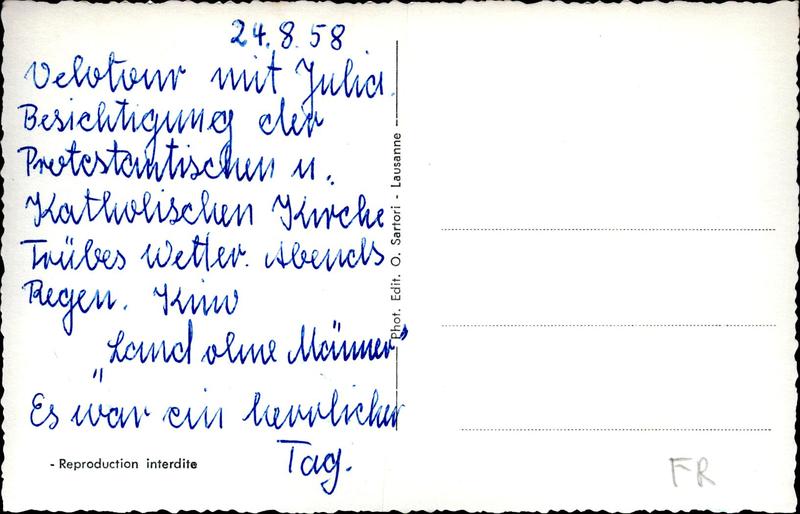 24.8.58
Velotour mit Julia.
Besichtigung der
Protestantischen u.
Katholischen Kirche
Trübes Wetter. Abends
Regen. Kino
„Land ohne Männer"
Es war ein herrlicher
Tag.
- Reproduction interdite
Phot. Edit. O. Sartori - Lausanne
FR